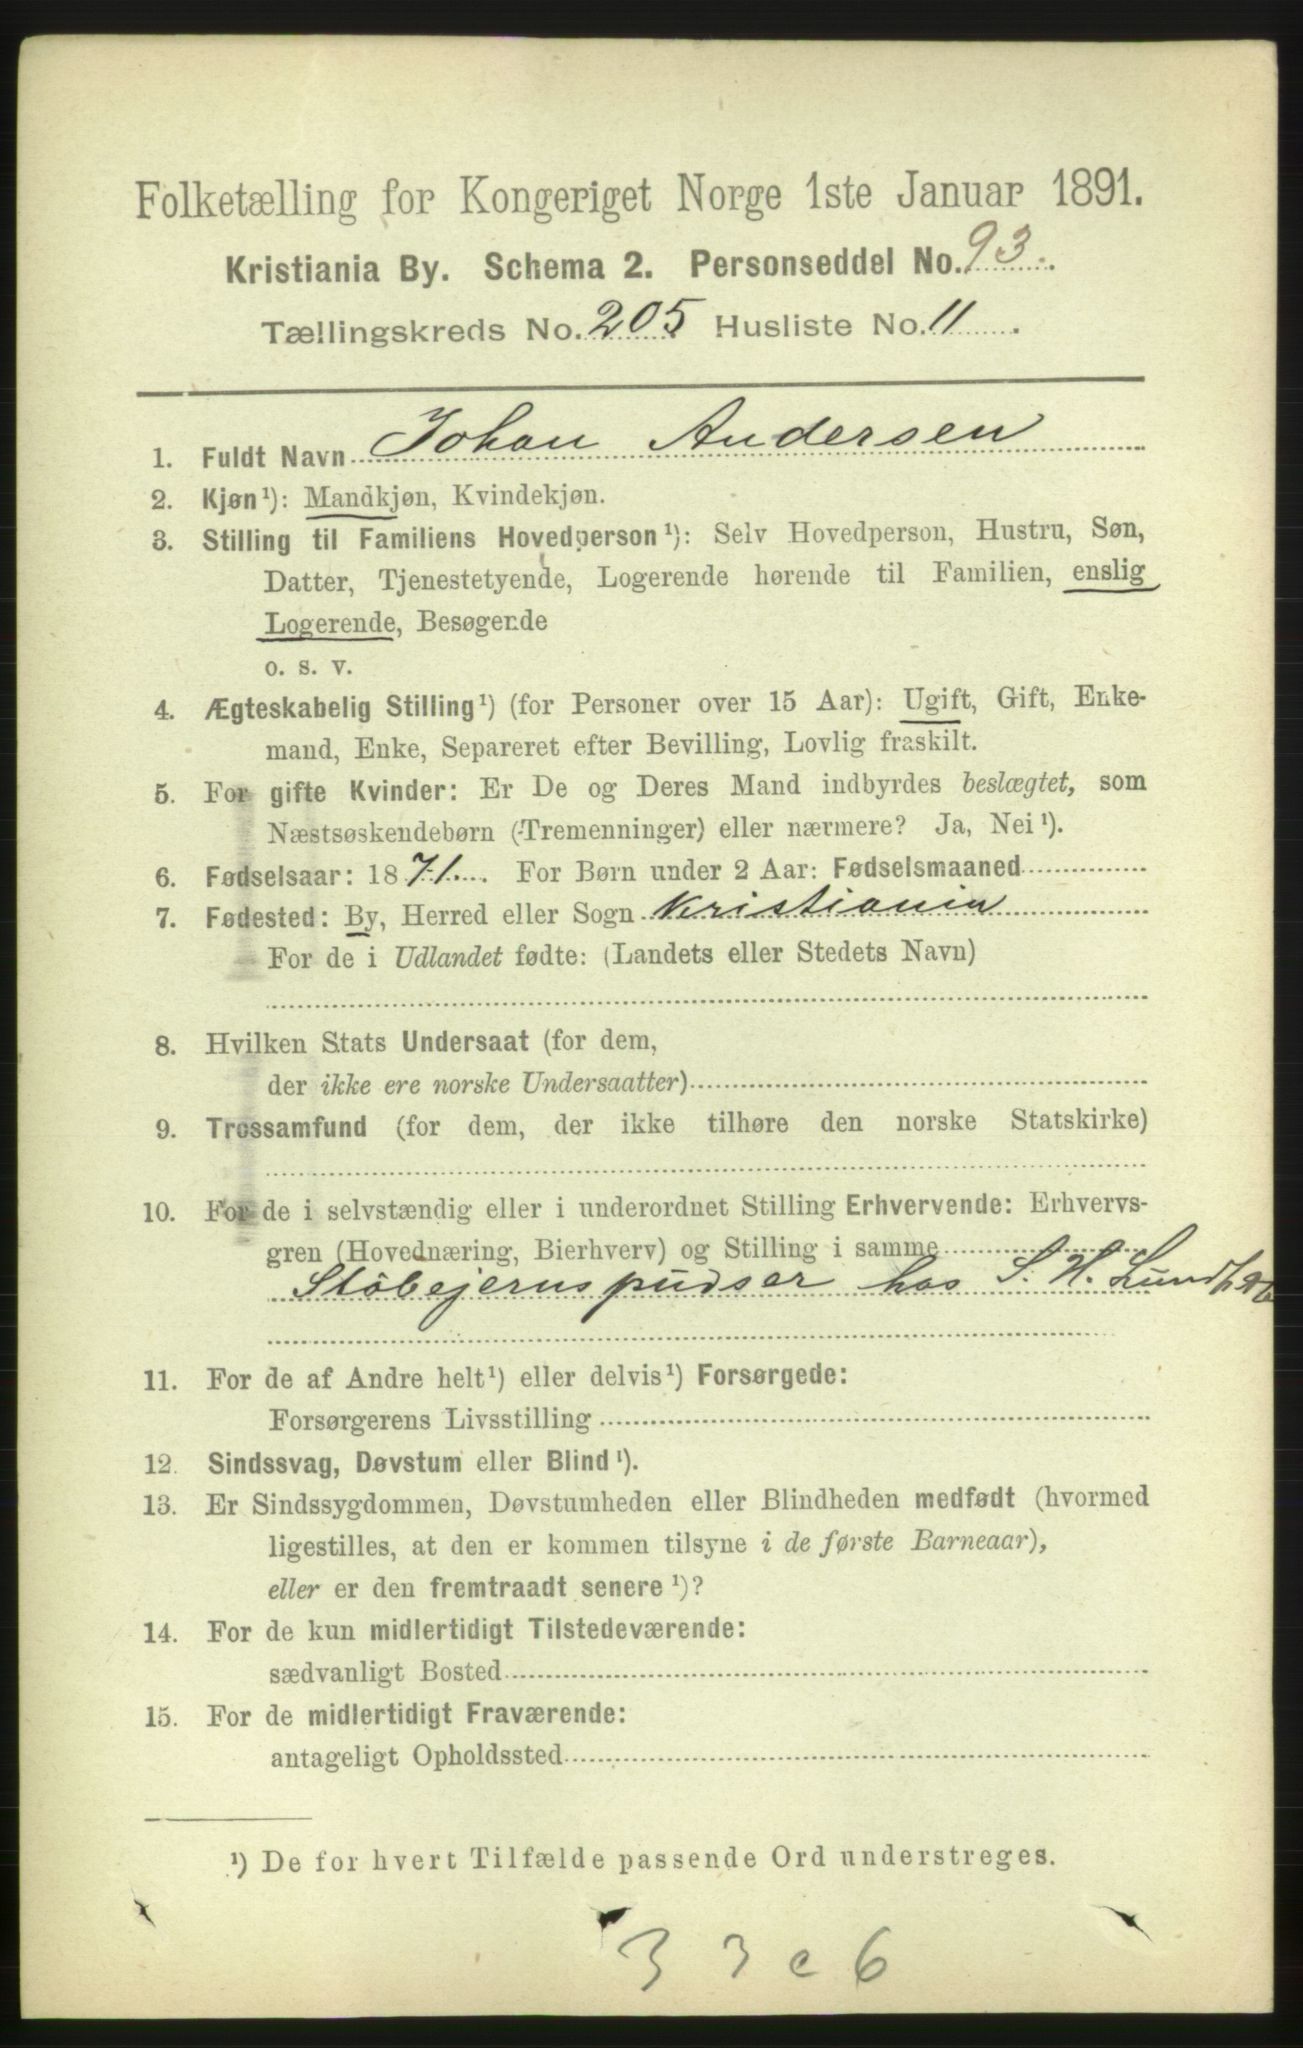 Folketælling for Kongeriget Norge 1ste Januar 1891.
Kristiania By. Schema 2. Personseddel No. 93.
Tællingskreds No. 205 Husliste No. 11.
1. Fuldt Navn Johan Andersen
2. Kjøn¹): Mandkjøn, Kvindekjøn.
3. Stilling til Familiens Hovedperson¹): Selv Hovedperson, Hustru, Søn,
Datter, Tjenestetyende, Logerende hørende til Familien, enslig
Logerende, Besøgende
o. s. v.
4. Ægteskabelig Stilling¹) (for Personer over 15 Aar): Ugift, Gift, Enke-
mand, Enke, Separeret efter Bevilling, Lovlig fraskilt.
5. For gifte Kvinder: Er De og Deres Mand indbyrdes beslægtet, som
Næstsøskendebørn (Tremenninger) eller nærmere? Ja, Nei¹).
6. Fødselsaar: 1871. For Børn under 2 Aar: Fødselsmaaned
7. Fødested: By, Herred eller Sogn Kristiania
For de i Udlandet fødte: (Landets eller Stedets Navn)
8. Hvilken Stats Undersaat (for dem,
der ikke ere norske Undersaatter)
9. Trossamfund (for dem, der ikke tilhøre den norske Statskirke)
10. For de i selvstændig eller i underordnet Stilling Erhvervende: Erhvervs-
gren (Hovednæring, Bierhverv) og Stilling i samme
Støbejernspudser hos S. H. 
11. For de af Andre helt¹) eller delvis¹) Forsørgede:
Forsørgerens Livsstilling
12. Sindssvag, Døvstum eller Blind¹).
13. Er Sindssygdommen, Døvstumheden eller Blindheden medfødt (hvormed
ligestilles, at den er kommen tilsyne i de første Barneaar),
eller er den fremtraadt senere¹)?
14. For de kun midlertidigt Tilstedeværende:
sædvanligt Bosted
15. For de midlertidigt Fraværende:
antageligt Opholdssted
¹) De for hvert Tilfælde passende Ord understreges.
33c6